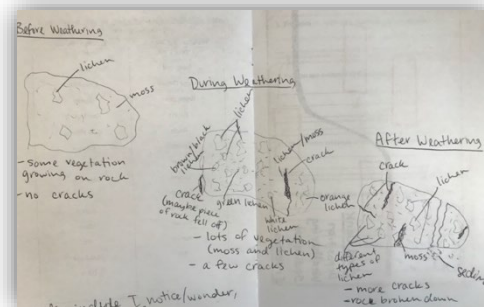 Before Weathering
lichen
moss
- some vegetation
growing on rock
- no cracks
During Weathering
lichen
brown/black
lichen
lichen/moss
crack
crack
(maybe piece
of rock fell off)
green lichen
white
lichen
orange
lichen
- lots of vegetation
(moss and lichen)
- a few cracks
After Weathering
crack
lichen
different
types of
lichen
moss
- more cracks
- rock broken down
include I notice/wonder,